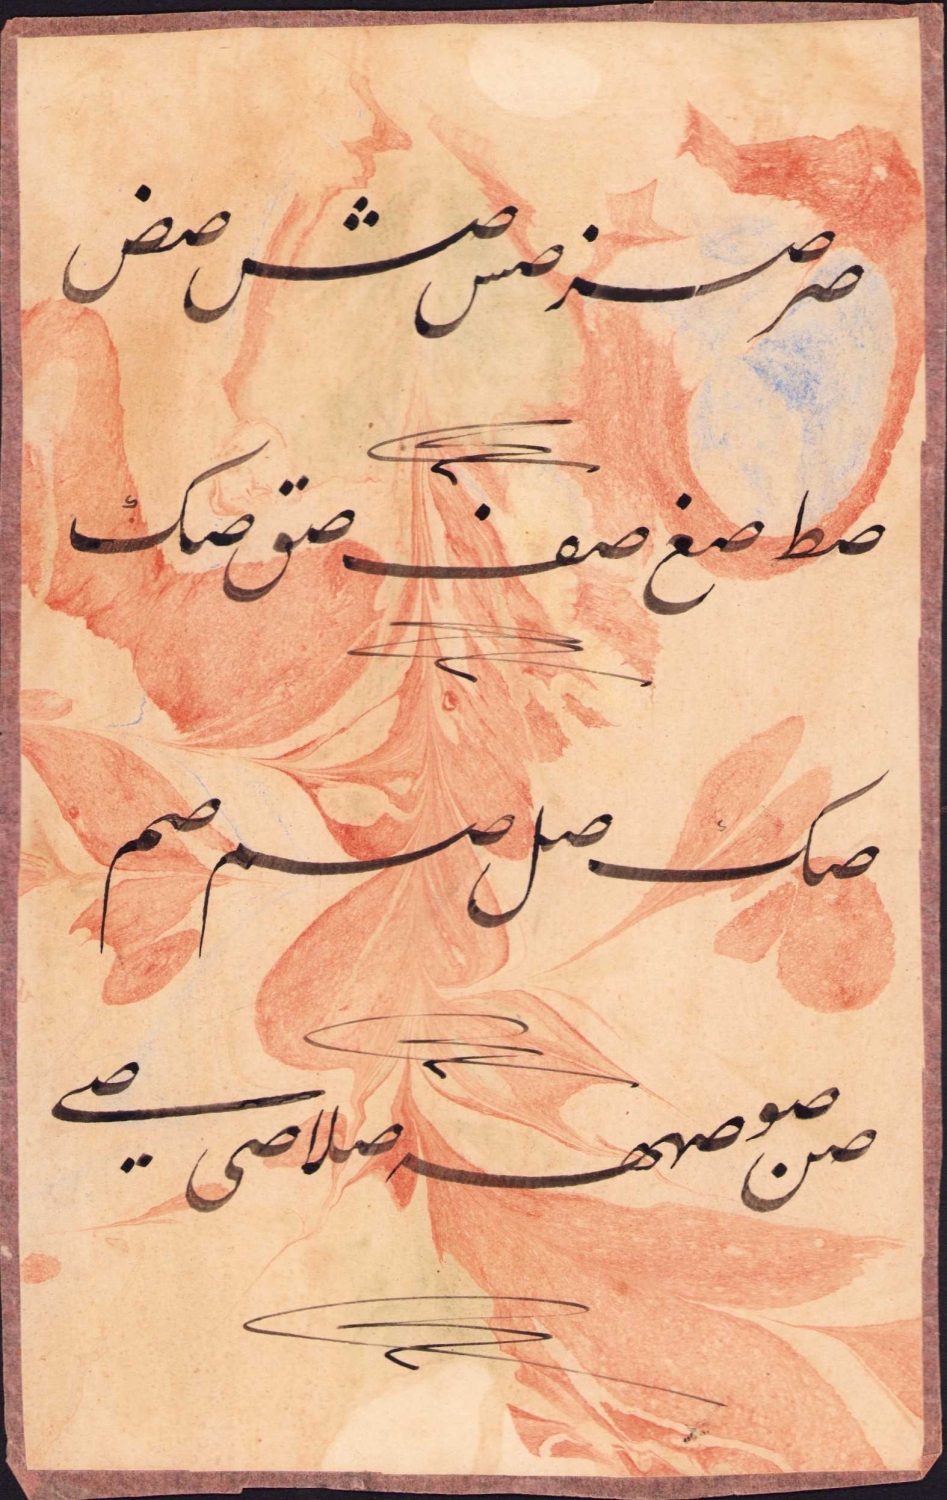 صر صز صس صش صض
صط صغ صف صق صک
صک صل صم صم
صن صو صهه صلا صی صے